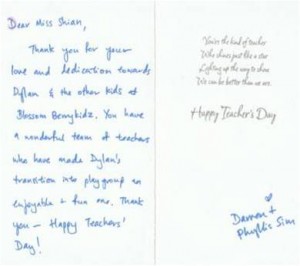 Dear Miss Shian,
Thank you for your
love and dedication towards
Dylan & the other kids at
Blossom Berrykidz. You have
a wonderful team of teachers
who have made Dylan's
transition into playgroup an
enjoyable + fun one. Thank
you — Happy Teachers'
Day!
You're the kind of teacher
Who shines just like a star
Lighting up the way to show
We can be better than we are.
Happy Teacher's Day
Darren +
Phyllis Sim